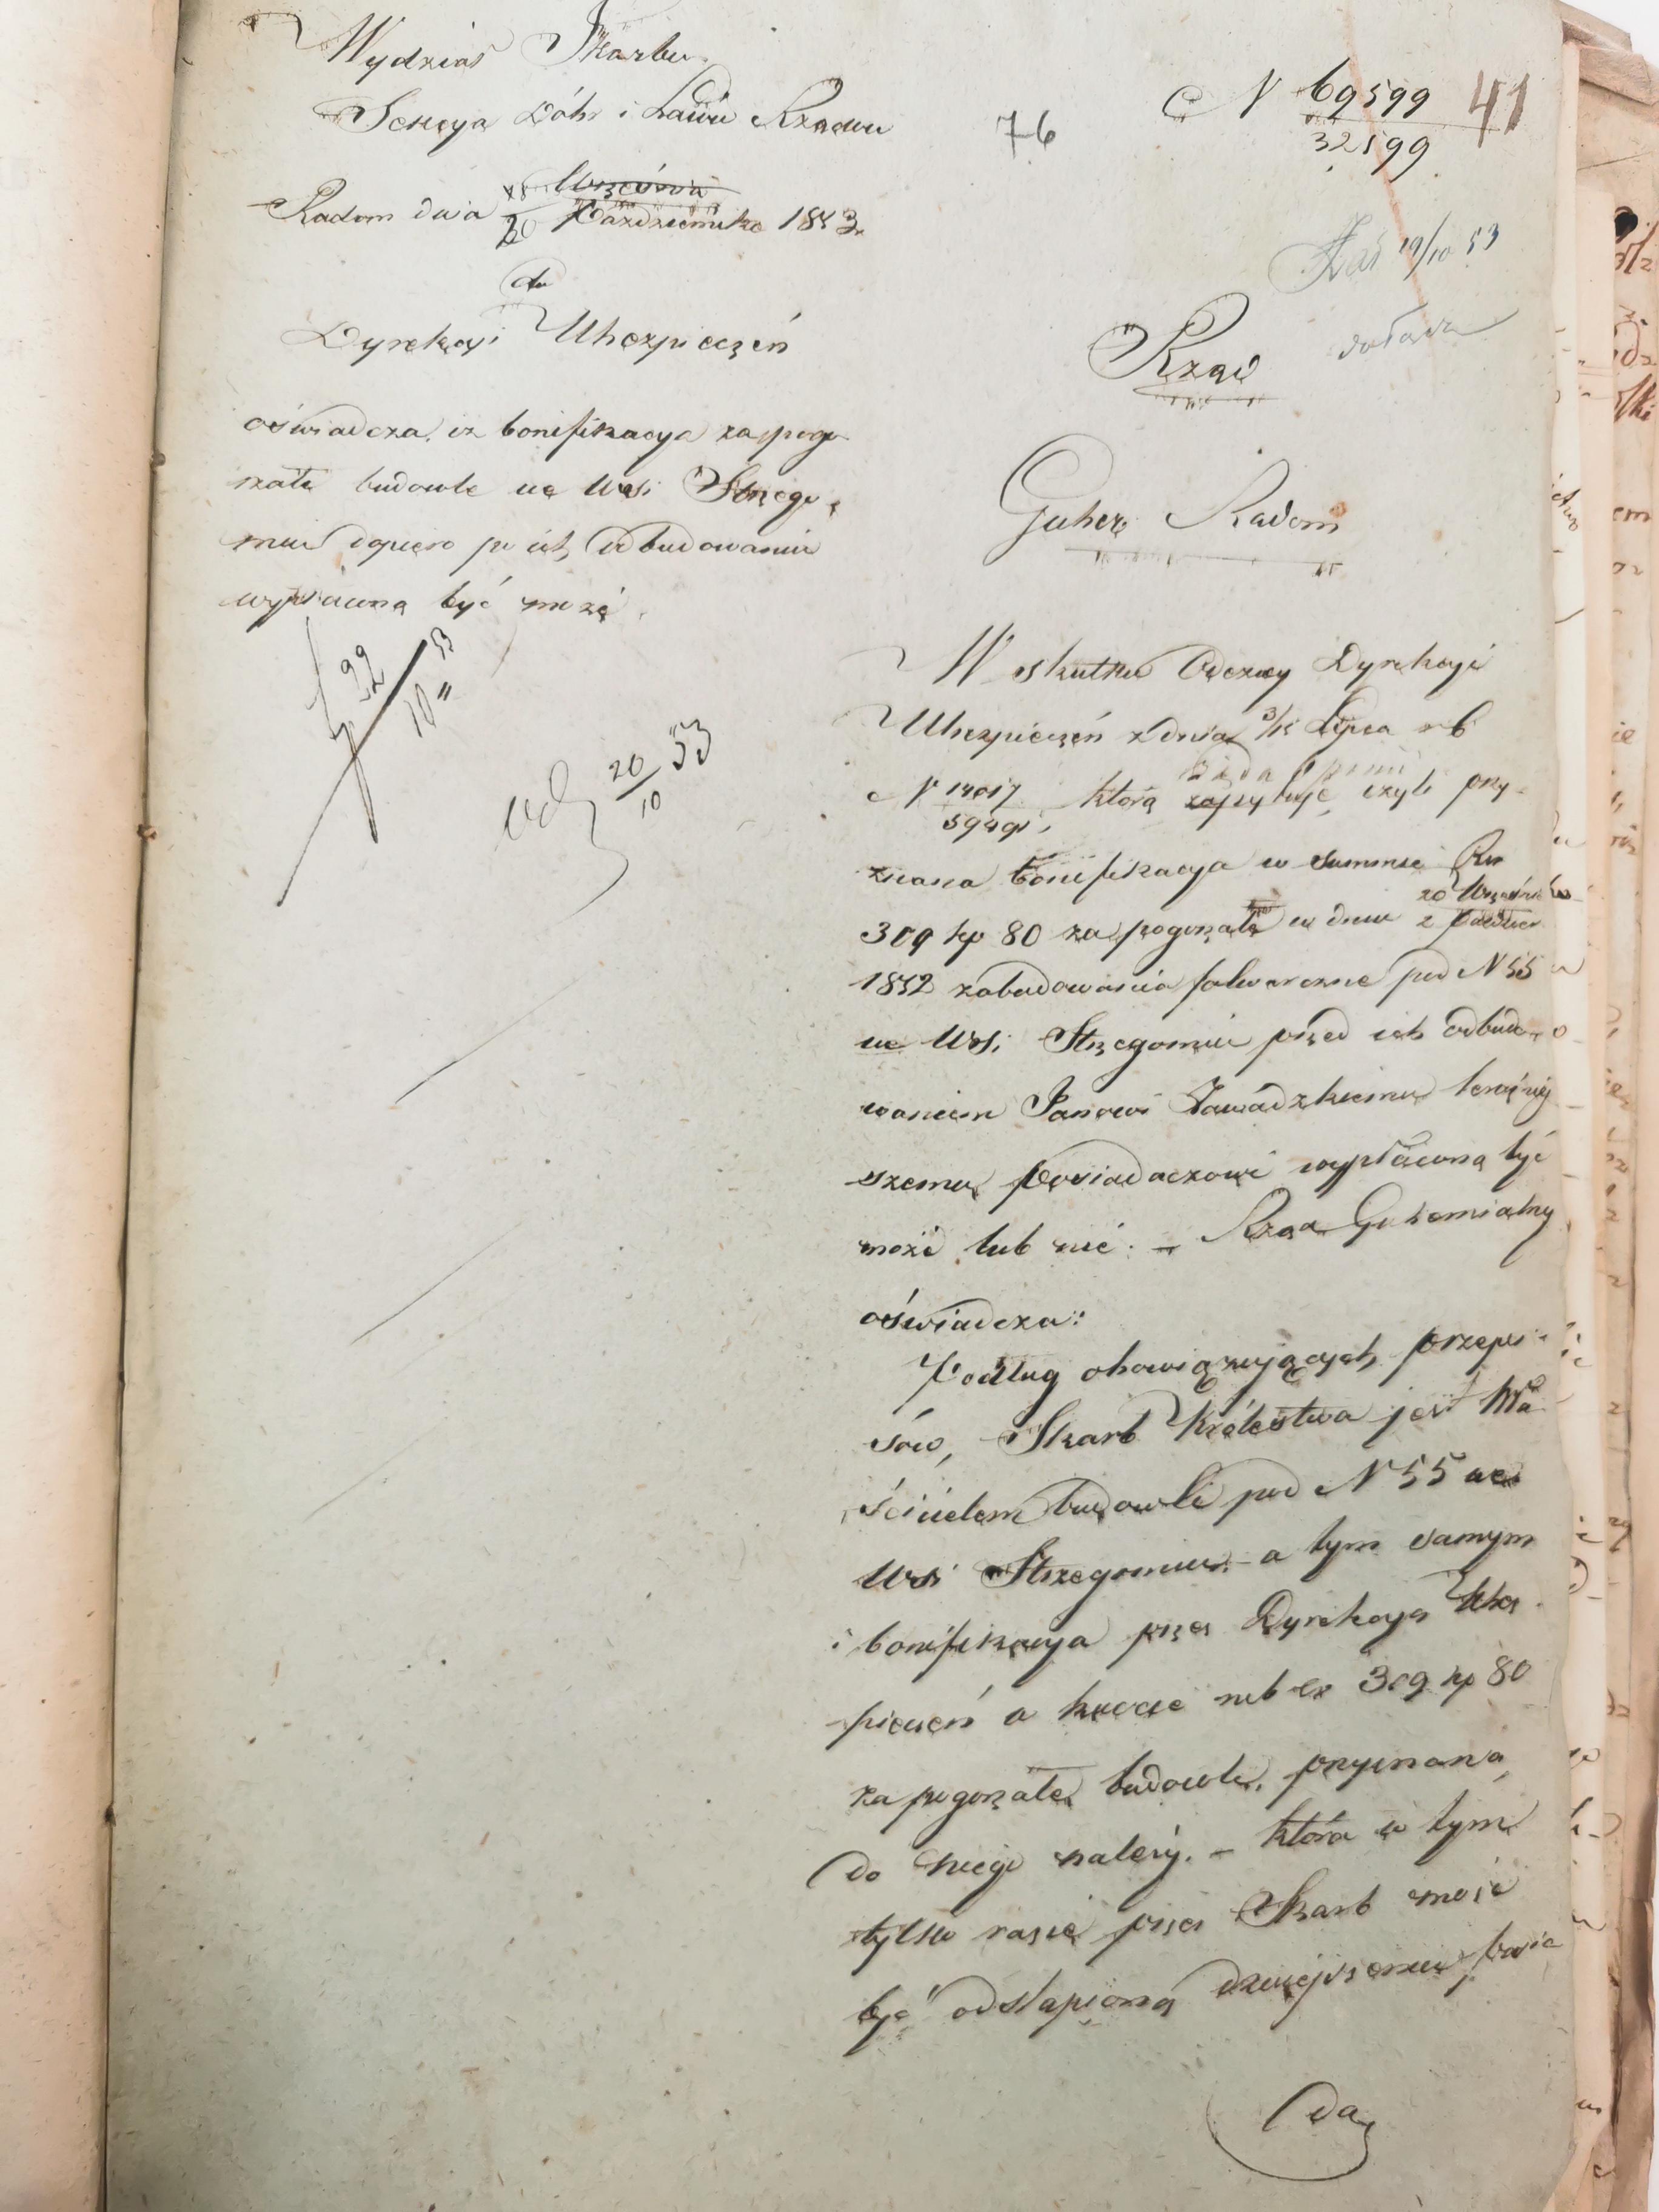 Wydział Skarbu
Sekcya Dóbr i Lasów Rządow
N 69599
32599
41
76
Radom dnia 18/20 Września Października 1853 r.
19/10 53
do
Dyrekcyi Ubezpieczeń
Rząd
Guber. Radom
oświadcza, iż bonifikacya za pogo-
rzałe budowle we Wsi Strzego-
miu dopiero po ich odbudowaniu
wypłaconą być może.
22/10 53
20/10 53
W skutku Odezwy Dyrekcyi
Ubezpieczeń z dnia 3/15 Lipca r b
N 14017 którą zapytuje, czyli przy-
znana bonifikacya w summie Rsr
309 kp 80 za pogorzałe w dniu 20 Września 2 Paździer
1852 zabudowania folwarczne pod N 55
we Wsi Strzegomiu przed ich odbudo-
waniem Panowi Zawadzkiemu teraźniej
szemu posiadaczowi wypłaconą być
może lub nie. – Rząd Gubernialny
oświadcza:
Podług obowiązujących przepi-
sów, Skarb Królestwa jest Wła-
ścicielem budowli pod N 55 we
Wsi Strzegomiu – a tym samym
i bonifikacya przez Dyrekcyą Ubez-
pieczeń w kwocie rub sr 309 kp 80
za pogorzałe budowle, przyznana,
do niego należy. – która w tym
tylko razie przez Skarb może
być odstąpioną